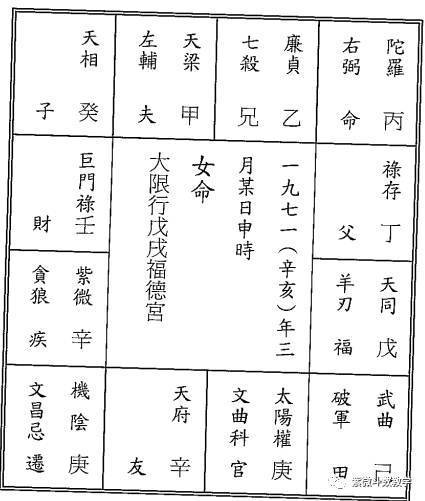 陀羅 丙
右弼 命
廉貞 乙
七殺 兄
天梁 甲
左輔 夫
天相 癸
子
祿存 丁
父
一九七一(辛亥)年三
月某日申時
女命
大限行戊戌福德宮
巨門祿壬
財
天同 戊
羊刃 福
紫微 辛
貪狼 疾
武曲 己
破軍 田
太陽權庚
文曲科官
天府 辛
友
機陰 庚
文昌忌遷
紫微斗数教学